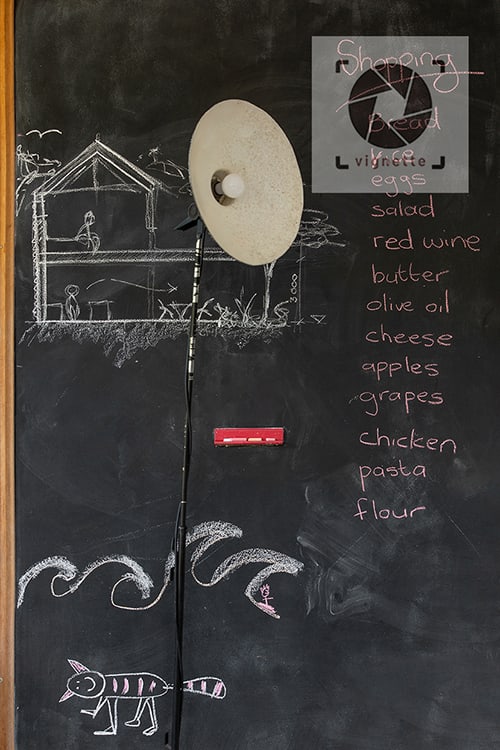 Shopping
Bread
vignette
eggs
salad
red wine
butter
olive oil
cheese
apples
grapes
chicken
pasta
flour
3000